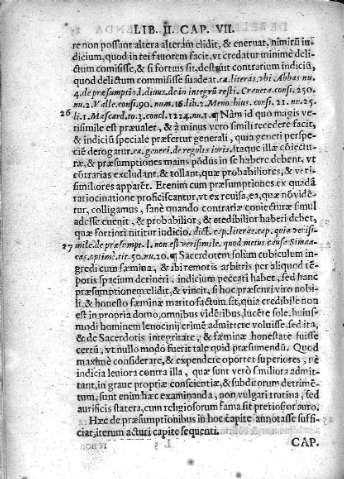 LIB. II. CAP. VII.
re non possunt altera alteram elidit, & eneruat, nimirũ in
dicium, quod in rei fauorem facit, vt credatur minimè deli-
ctum comisisse, & si fortius sit, destruit contrarium indiciũ,
quod delictum commisisse suadeat. ca. literas, vbi Abbas nu.
4. de præsumptio. l. diuus. de in integrũ resti, Craueta consi. 250.
nu. 2. Valle. consi. 90. num. 16. lib. 2. Menochius. consi. 21. nu. 25.
26 li. 1. Mascard. to. 3. concl. 1224. nu. 1. ¶ Nam id quo magis ve-
risimile est præualet, & à minus vero simili recedere facit,
& indiciũ speciale præfertur generali, quia generi per spe-
ciẽ derogatur ca. generi. de regulis iuris. itaque illæ cõiectu-
ræ, & præsumptiones mutuò in se habere debent, vt
contrarias excludant, & tollant, quæ probabiliores, & veri-
similiores apparẽt. Etenim cum præsumptiones ex quadã
ratiocinatione proficiscantur, vt ex reuisa, ea, quæ nõ vide-
tur, colligamus, sanè quando contrariæ coniecturæ simul
adesse cuenit, & probabilior, & credibilior haberi debet,
quæ fortiori nititur iudicio. dict. cap. literas. cap. quia verisi-
27 mile. de præsumpt. l. non est verisimile. quod metus causa Siman-
cas, optimè. tit. 50. nu. 20. ¶ Sacerdotem solum cubiculum in-
gredi cum fæmina, & ibi remotis arbitris per aliquod tẽ-
poris spacium detineri, indicium peccati habet, sed hanc
præsumptionem elidit, & vincit, si hoc præsenti viro nobi-
li, & honesto fæminæ marito factum sit, quia credibile non
est in propria domo, omnibus vidẽtibus, lucẽte sole, huius-
modi hominem lenocinij crimẽ admittere voluisse. sed ita,
& de Sacerdotis integritate, & fæminæ honestate fuisse
certũ, vt nullo modo fuerit tale quid præsumendũ. Quod
maximè considerare, & expendere oportet superiores, ne
indicia leuiora contra illa, quæ sunt verò similiora admit-
tant, in graue proptiæ conscientiæ, & subditorum detrimẽ-
tum, sunt enim hæc examinanda, non vulgari trutina, sed
aurificis statera, cum religiosorum fama sit pretiosior auro.
Hæc de præsumptionibus in hoc cãpite annotasse suffi-
ciat, iterum acturi capite sequenti.
CAP.